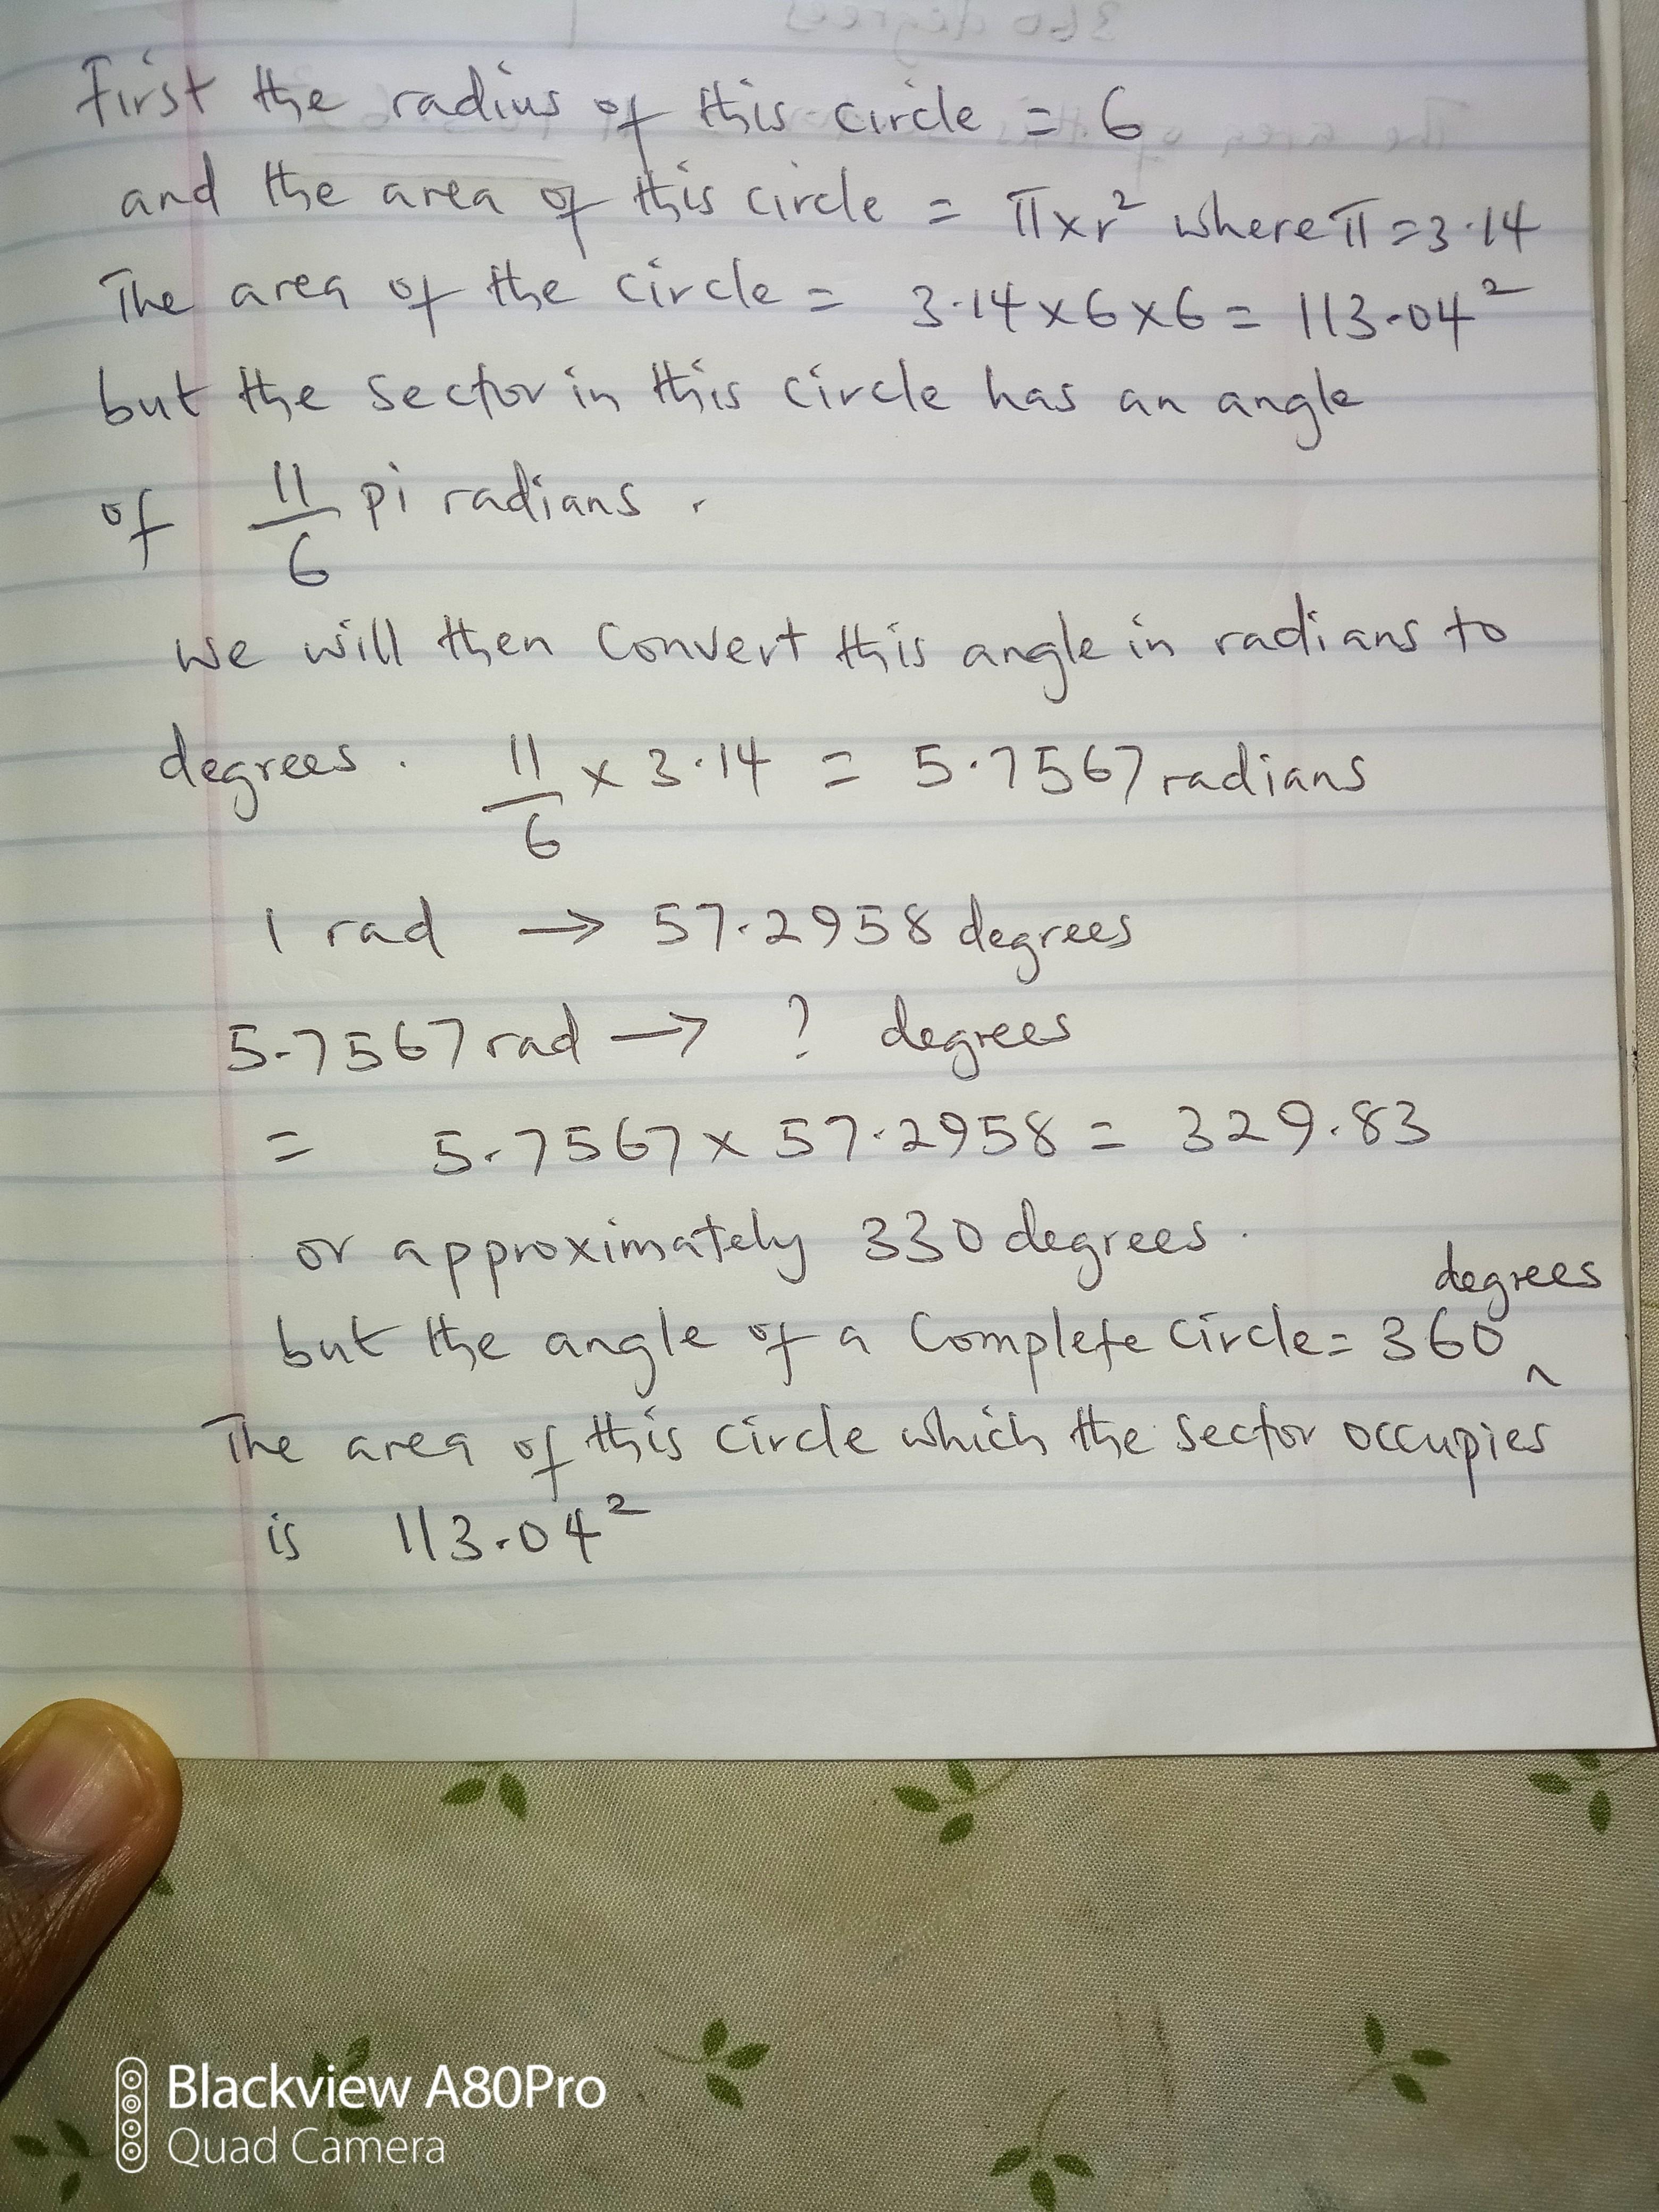 First the radius of this circle = 6
and the area of this circle = π×r² where π=3.14
The area of the circle = 3.14×6×6 = 113.04²
but the sector in this circle has an angle
of 11/6 pi radians.
we will then convert this angle in radians to
degrees. 11/6 × 3.14 = 5.7567 radians
1 rad → 57.2958 degrees
5.7567 rad → ? degrees
= 5.7567 × 57.2958 = 329.83
or approximately 330 degrees.
but the angle of a complete circle = 360 degrees
The area of this circle which the sector occupies
is 113.04²
Blackview A80Pro
Quad Camera